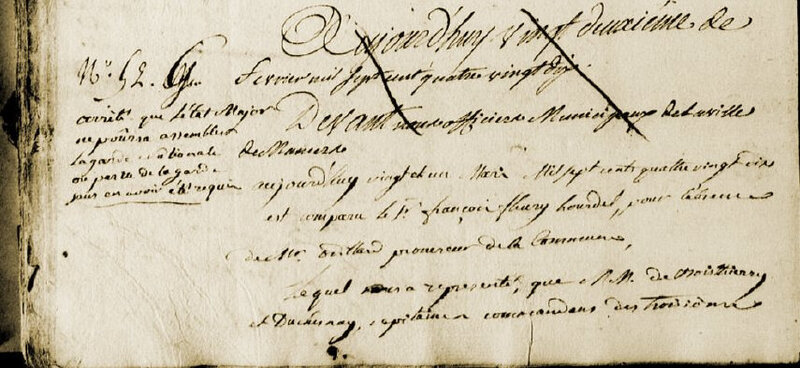 D'aujourd'huy vingt deuxiême de
fevrier mil sept cent quatre vingt dix
Devant nous officiers Municipaux de la ville
de Mamers
N.o 52.
arrêté que l'état Major
ne pourra assembler
la garde nationale
ou partie de la garde
sans en avoir été requis
aujourd'huy vingt et un Mars Mil sept cents quatre vingt dix
est comparu le Sr. françois fleury hourdel, pour l'absence
de Mr. procureur de la Commune,
Lequel nous a representé, que M.M. de
et Duchesnay, capitaines commandans des troisiême